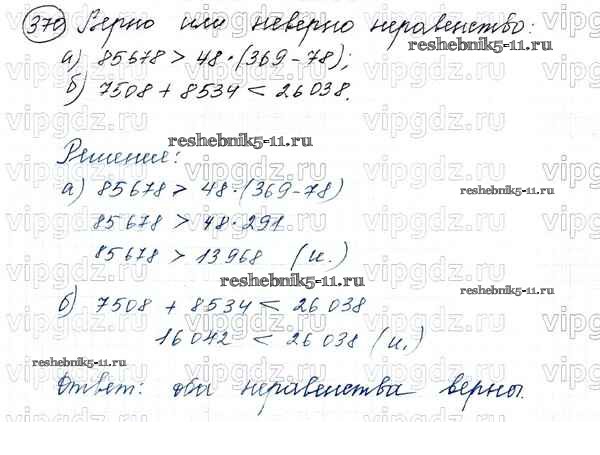 370 Верно или неверно неравенство:
reshebnik5-11.ru
а) 85678 > 48·(369-78);
б) 7508 + 8534 < 26038.
vipgdz.ru vipgdz.ru vipgdz.ru
reshebnik5-11.ru
Решение:
а) 85678 > 48·(369-78)
reshebnik5-11.ru
85678 > 48·291
85678 > 13968 (и.)
vipgdz.ru vipgdz.ru vipgdz.ru
reshebnik5-11.ru
reshebnik5-11.ru
б) 7508 + 8534 < 26038
16042 < 26038 (и.)
reshebnik5-11.ru
Ответ: оба неравенства верны.